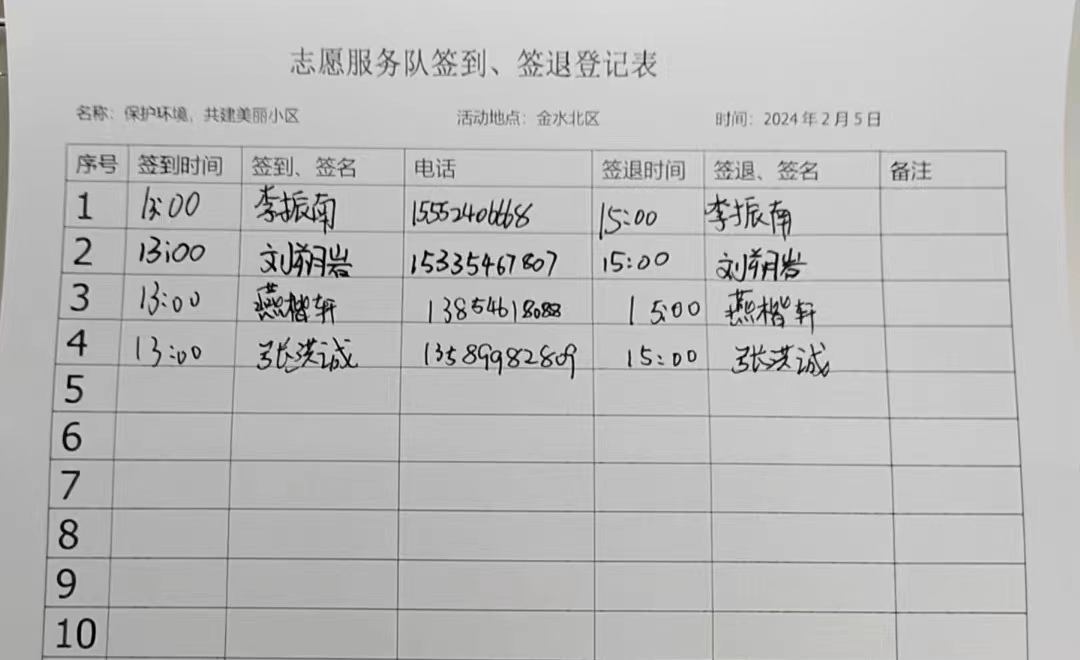 志愿服务队签到、签退登记表
名称：保护环境，共建美丽小区 活动地点：金水北区 时间：2024年2月5日
序号 签到时间 签到、签名 电话 签退时间 签退、签名 备注
1 13:00 李振南 15552406668 15:00 李振南
2 13:00 刘翔岩 15335467807 15:00 刘翔岩
3 13:00 燕楷轩 13854618088 15:00 燕楷轩
4 13:00 张洪诚 13589982809 15:00 张洪诚
5
6
7
8
9
10